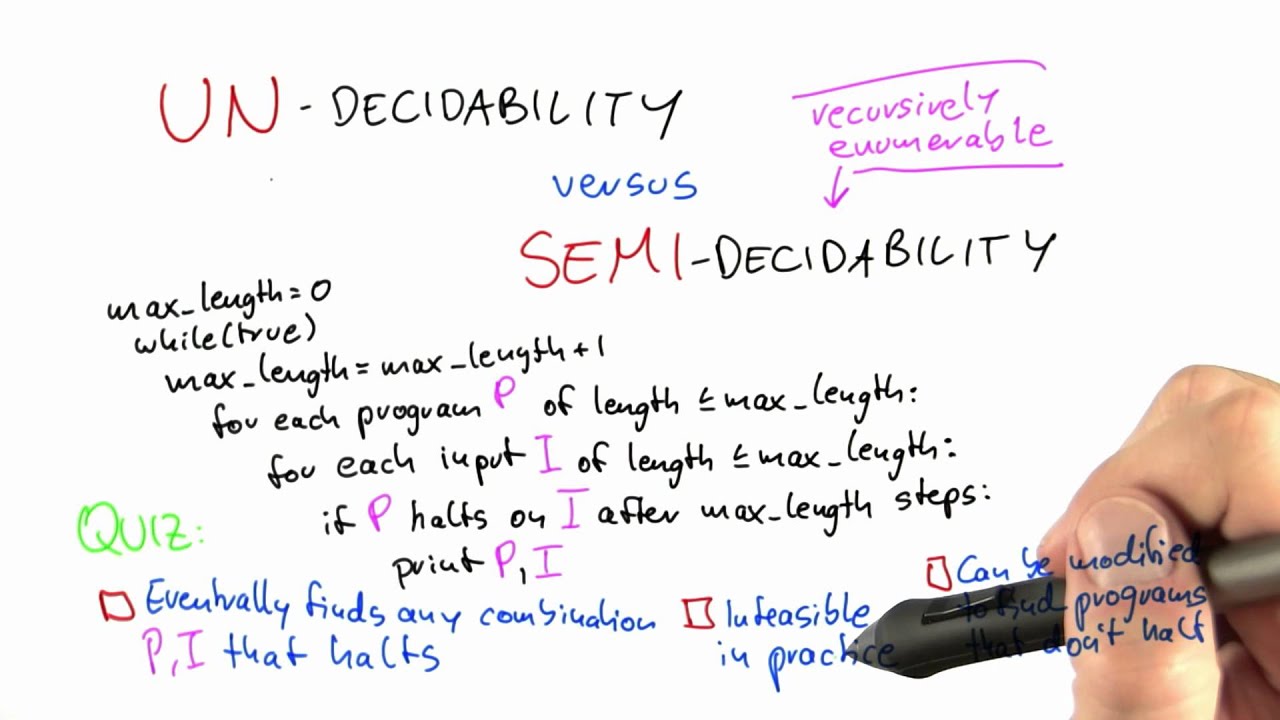 UN-DECIDABILITY
versus
recursively
enumerable
SEMI-DECIDABILITY
max_length = 0
while(true)
max_length = max_length + 1
for each program P of length ≤ max_length:
for each input I of length ≤ max_length:
if P halts on I after max_length steps:
print P, I
QUIZ:
Eventually finds any combination
P, I that halts
Infeasible
in practice
Can be modified
to find programs
that don't halt